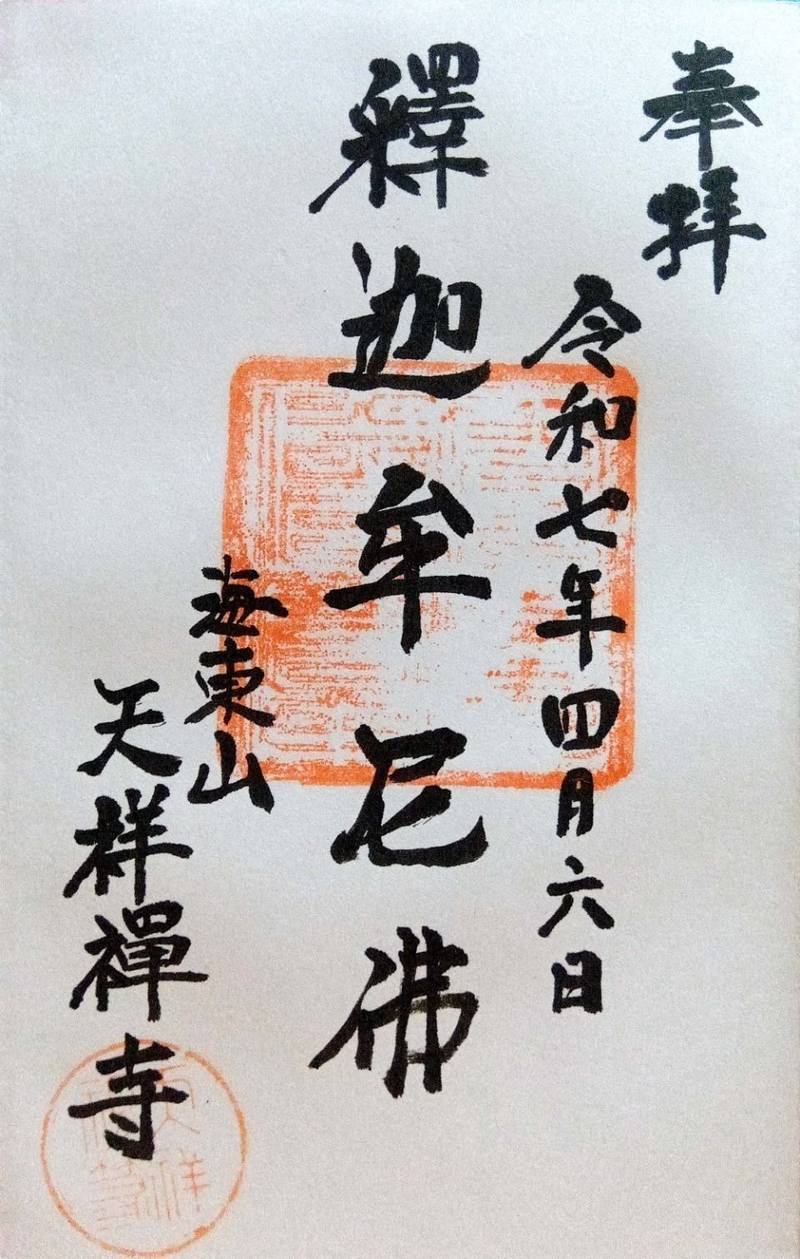 奉拝
令和七年四月六日
釋迦牟尼佛
海東山
天祥禪寺